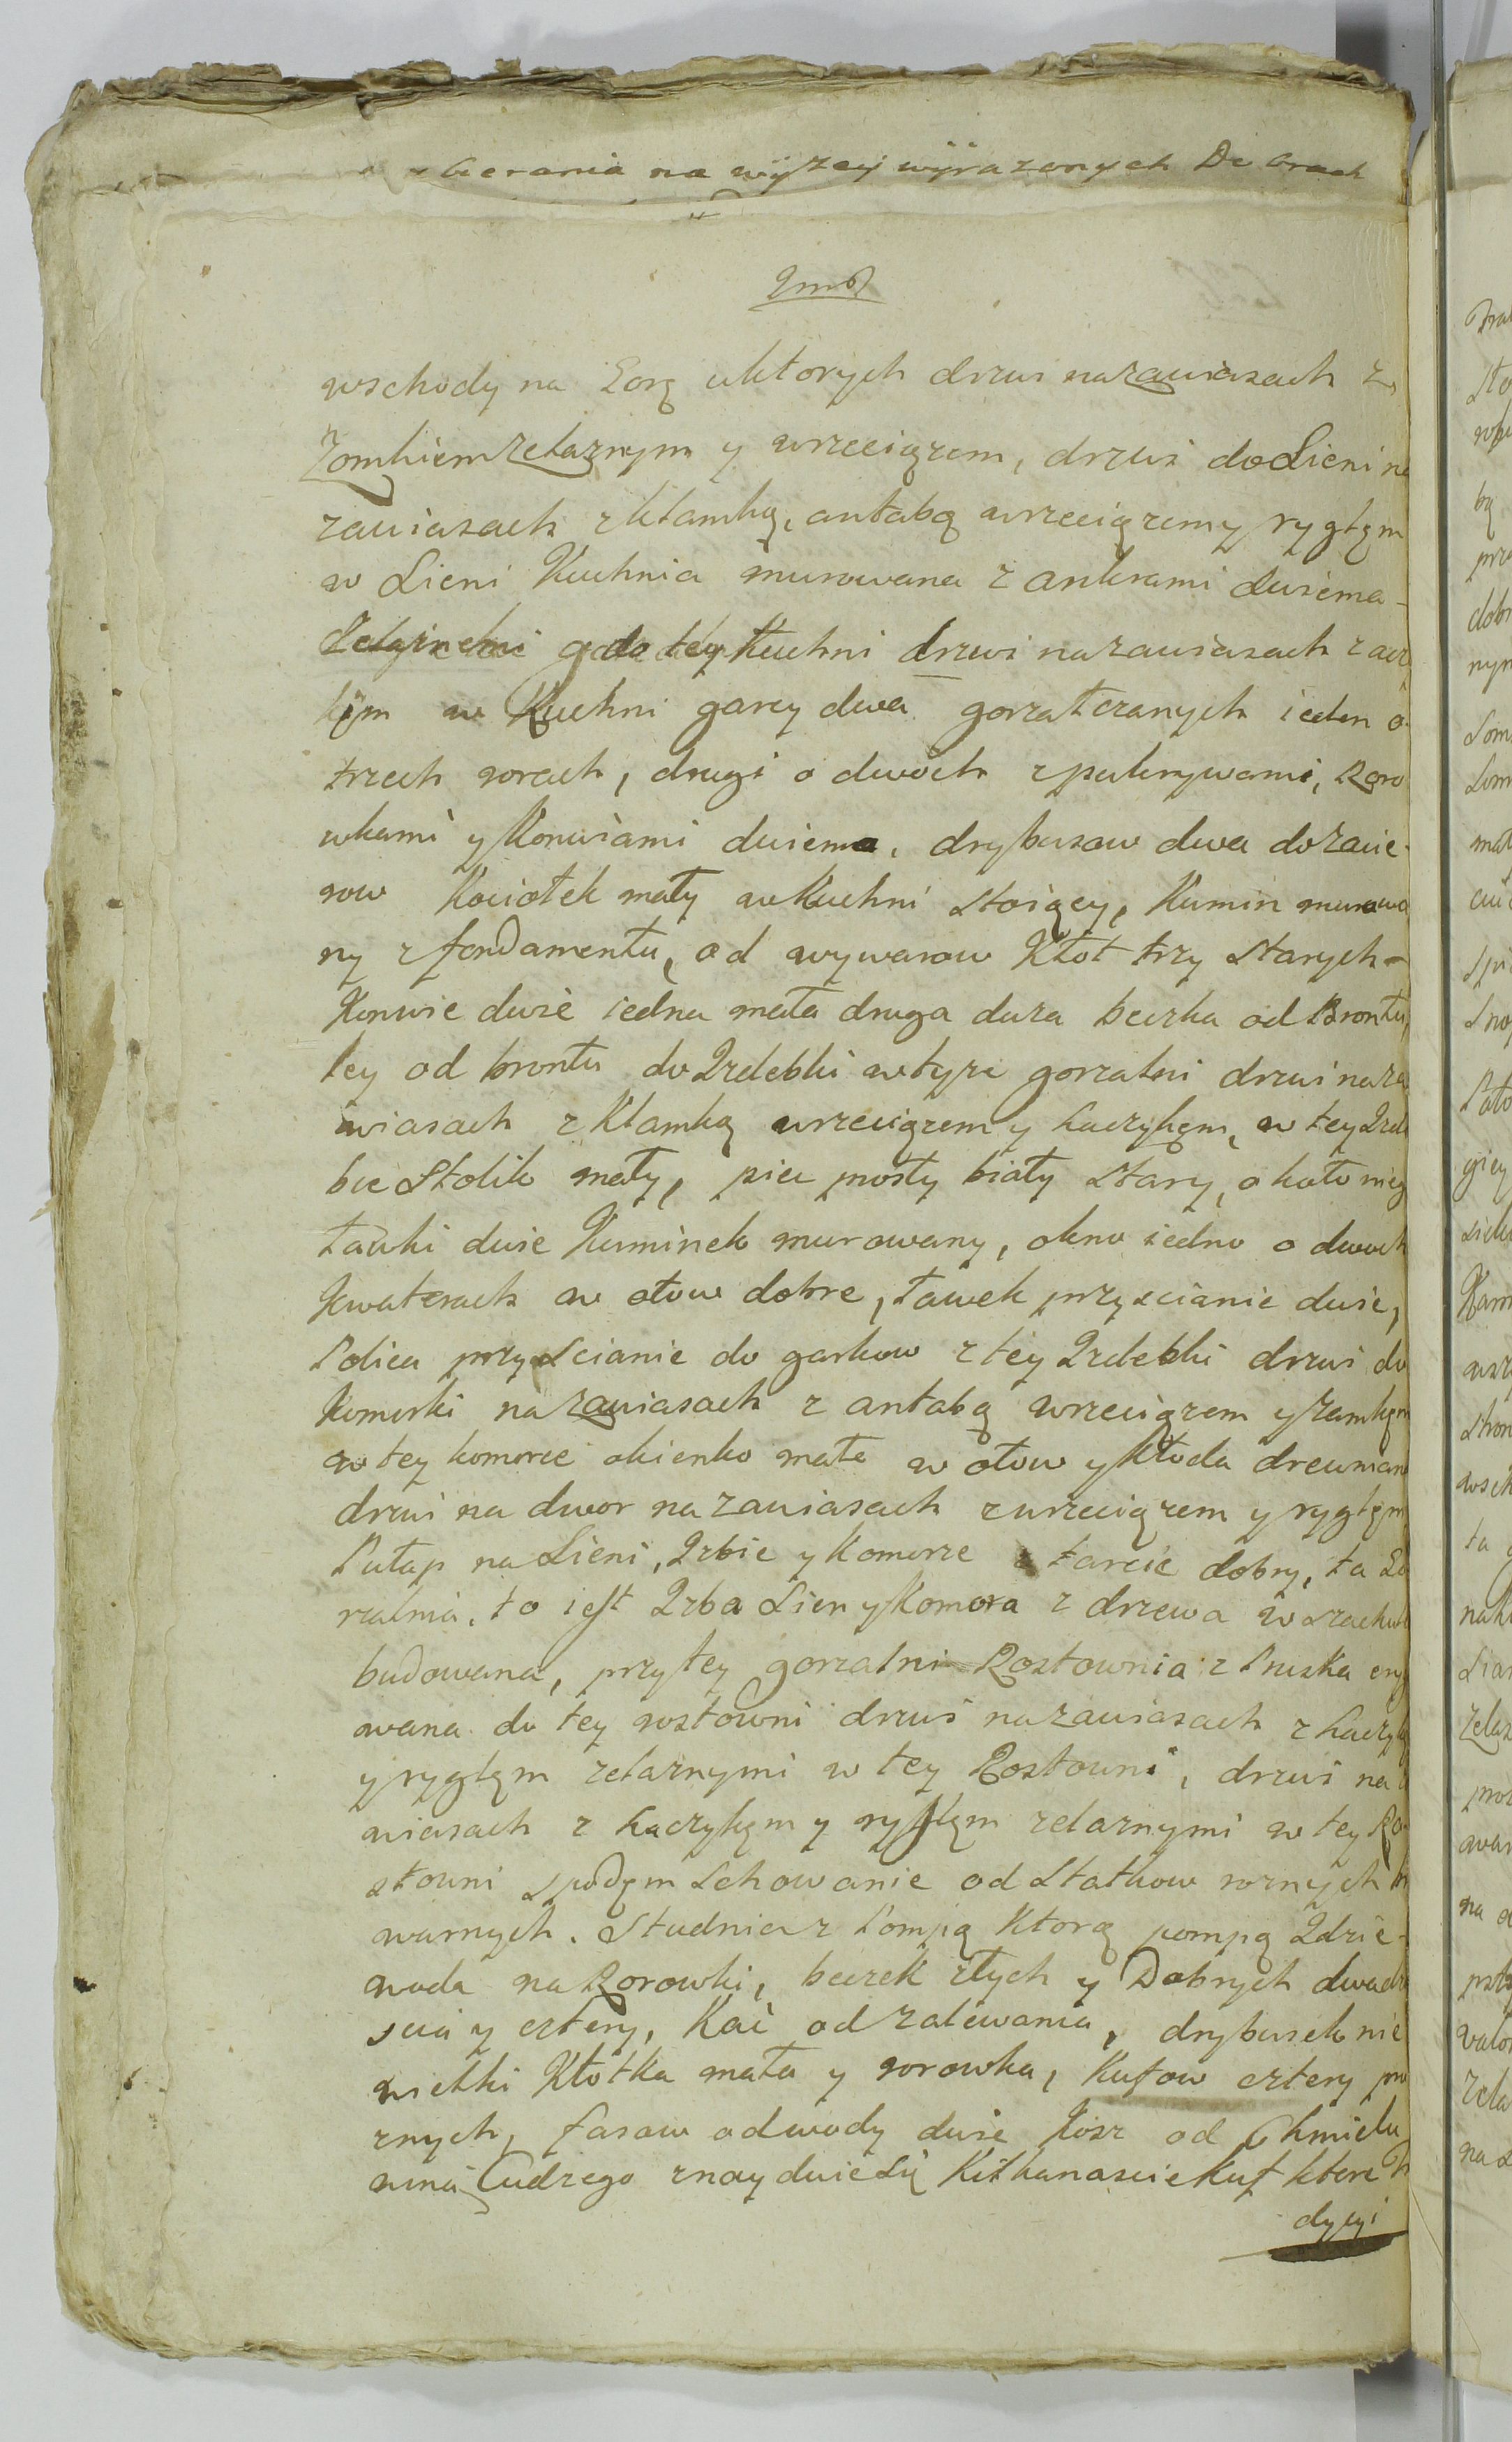 na wyzey wyrazonych Dobrach
wschody na Gorę uktorych drzwi nazawiasach z
Zomkiem zelaznym y wrzeciązem, drzwi do Sieni na
zawiasach zklamką, antabą wrzeciązem y ryglęm
w Sieni Kuchnia murowana z ankrami dwiema
do tey Kuchni drzwi nazawiasach z
w Kuchni garcy dwa gorzałczanych ieden o
trzech rorach, drugi o dwoch zpukrywami, Roro
wkami y Konwiami dwiema, drybusow dwa do zacie-
row Kociołek mały w Kuchni stoiący, Kumin murowa
ny z fondamentu, od wywarow Kłot trzy starych
Konwie dwie iedna mała druga duza beczka od Brontu,
tey od brontu do Izdebki wtyze gorzalni drzwi naza
wiasach z Klamką wrzeciązem y haczykęm, w tey Izde
bce Stolik mały, piec prosty biały stary, około nieg
ławki dwie Kuminek murowany, okno iedno o dwoch
Kwaterach w ołow dobre, ławek przyscianie dwie,
Polica przyscianie do garkow z tey Izdebki drzwi do
Komorki nazawiasach z antabą wrzeciązem y zamkęm
w tey komorce okienko małe w ołow y Kłoda drewnian
drzwi na dwor nazawiasach zwrzeciązem y ryglęm
Pułap na Sieni, Izbie y Komorze z tarcic dobry, ta Go
rzalnia, to iest Izba Sien y Komora z drzewa w szachul
budowana, przytey gorzalni Rostownia z Pruska ery
wana do tey rostowni drzwi nazawiasach z haczyk
y ryglęm zelaznymi w tey Rostowni, drzwi na
wiasach z haczykęm y ryglęm zelaznymi w tey Ro
stowni spodęm schowanie od Statkow roznych
warnych. Studnia z Pompą Ktorą pompą Idzie
woda na Rorowki, beczek złych y Dobrych dwadzie
scia y cztery, Kać od zalewania, drybusek nie
wielki Kłotka mała y rorowka, Kufow cztery pro
znych, fasow odwody dwie Kosz od Chmielu
wina Cudzego znaydwie się Kilkanascie Kuf ktore
dycyi